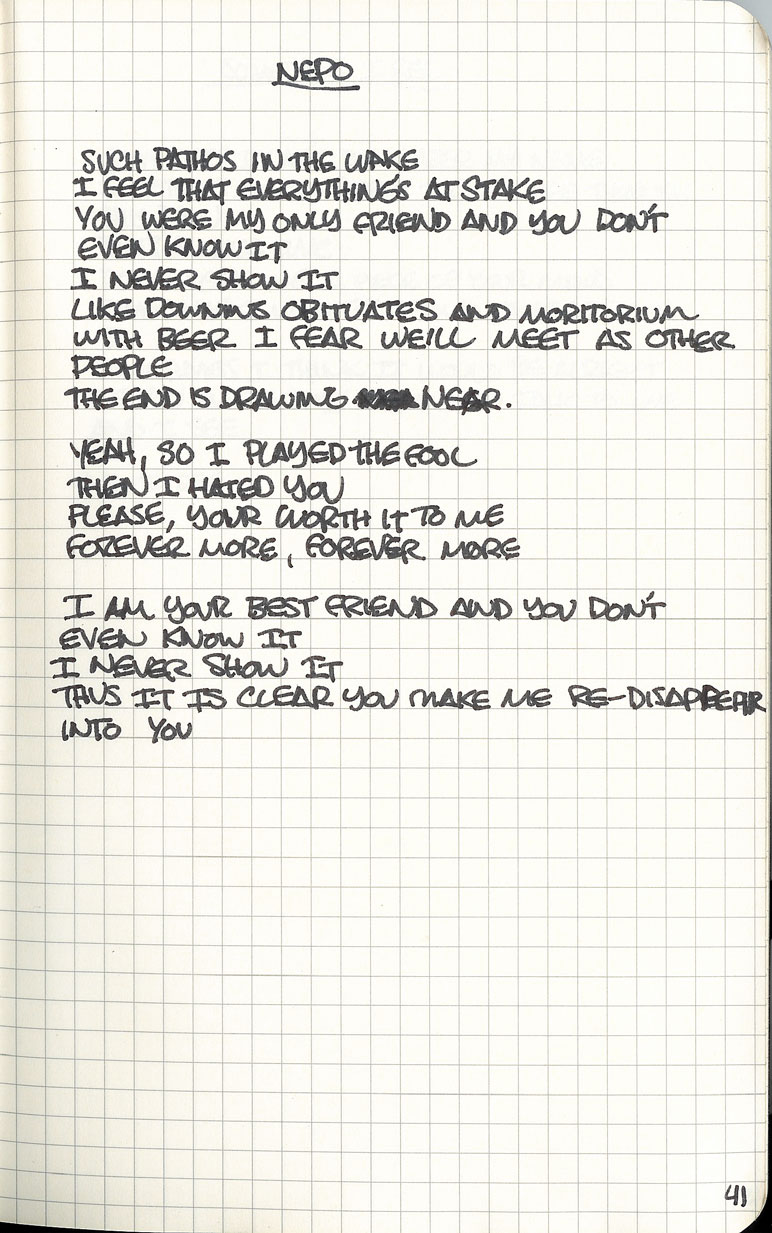 NEPO
SUCH PATHOS IN THE WAKE
I FEEL THAT EVERYTHING'S AT STAKE
YOU WERE MY ONLY FRIEND AND YOU DON'T
EVEN KNOW IT
I NEVER SHOW IT
LIKE DOWNING OBITUATES AND MORITORIUM
WITH BEER I FEAR WE'LL MEET AS OTHER
PEOPLE
THE END IS DRAWING NEAR.
YEAH, SO I PLAYED THE FOOL
THEN I HATED YOU
PLEASE, YOUR WORTH IT TO ME
FOREVER MORE, FOREVER MORE
I AM YOUR BEST FRIEND AND YOU DON'T
EVEN KNOW IT
I NEVER SHOW IT
THUS IT IS CLEAR YOU MAKE ME RE-DISAPPEAR
INTO YOU
41